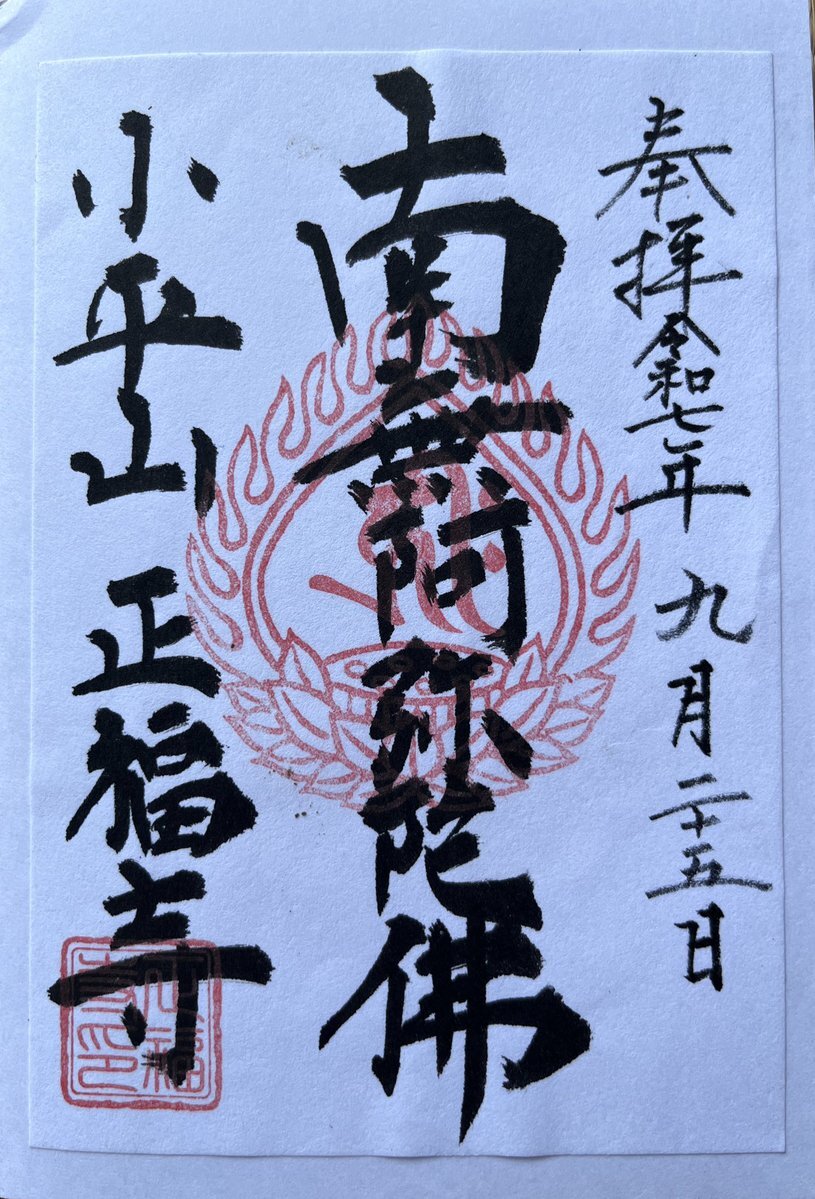 奉拝令和七年九月二十五日
南無阿弥陀佛
小平山正福寺
正福寺印